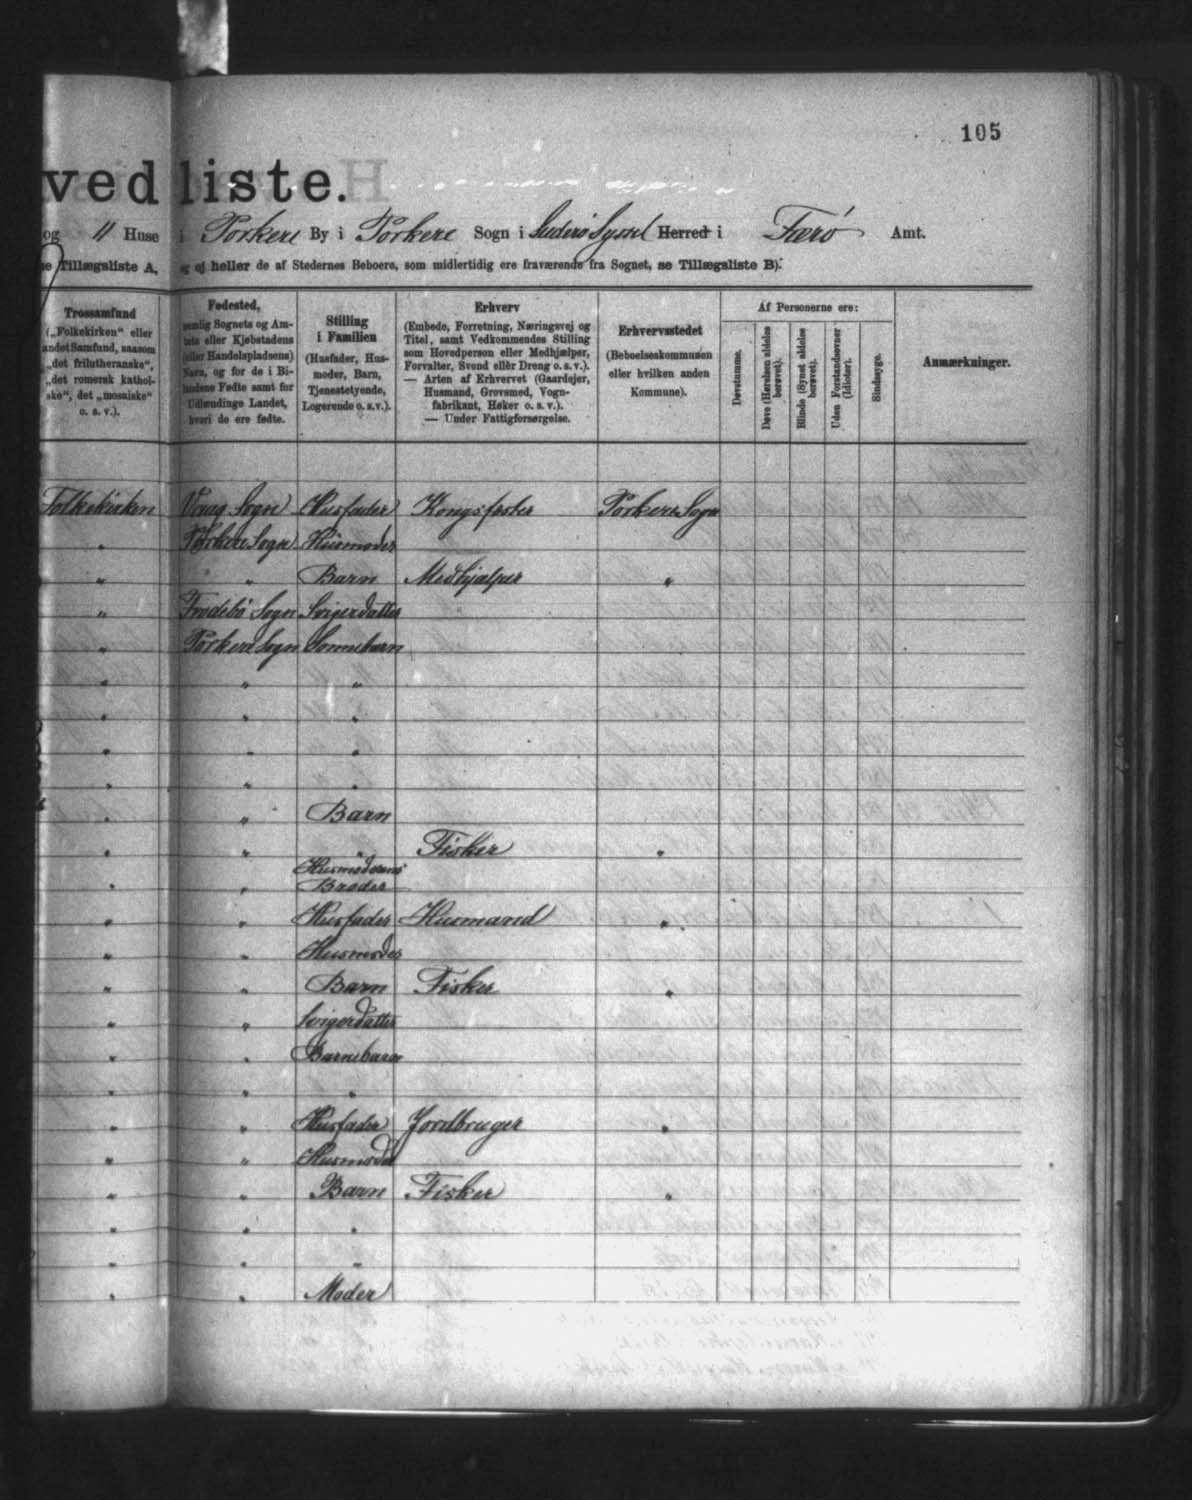 105
ved liste.
og 11 Huse i Porkere By i Porkere Sogn i Suderø Syssel Herred i Færø Amt.
Tillægsliste A, og ej heller de af Stedernes Beboere, som midlertidig ere fraværende fra Sognet, se Tillægsliste B).
Trossamfund
(„Folkekirken“ eller
andet Samfund, saasom
„det frilutheranske“,
„det romersk kathol-
ske“, det „mosaiske“
o. s. v.).
Fødested,
nemlig Sognets og Am-
tets eller Kjøbstadens
(eller Handelspladsens)
Navn, og for de i Bi-
landene Fødte samt for
Udlændinge Landet,
hvori de ere fødte.
Stilling
i Familien
(Husfader, Hus-
moder, Barn,
Tjenestetyende,
Logerende o.s.v.).
Erhverv
(Embede, Forretning, Næringsvej og
Titel, samt Vedkommendes Stilling
som Hovedperson eller Medhjælper,
Forvalter, Svend eller Dreng o.s.v.).
— Arten af Erhvervet (Gaardejer,
Husmand, Grovsmed, Vogn-
fabrikant, Høker o. s. v.).
— Under Fattigforsørgelse.
Erhvervsstedet
(Beboelseskommunen
eller hvilken anden
Kommune).
Af Personerne ere:
Døvstumme.
Døve (Hørelsen aldeles
berøvet).
Blinde (Synet aldeles
berøvet).
Uden Forstandsevner
(Idioter).
Sindssyge.
Anmærkninger.
Folkekirken Vaag Sogn Husfader Kongsfæster Porkere Sogn
„ Porkere Sogn Husmoder
„ „ Barn Medhjælper „
„ Frodebø Sogn Svigerdatter
„ Porkere Sogn Sønnebarn
„ „ „
„ „ „
„ „ „
„ „ „
„ „ Barn
„ „ „ Fisker „
„ „ Husmoderens Broder
„ „ Husfader Husmand „
„ „ Husmoder
„ „ Barn Fisker „
„ „ Svigerdatter
„ „ Barnebarn
„ „ „
„ „ Husfader Jordbruger „
„ „ Husmoder
„ „ Barn Fisker „
„ „ „
„ „ „
„ „ Moder